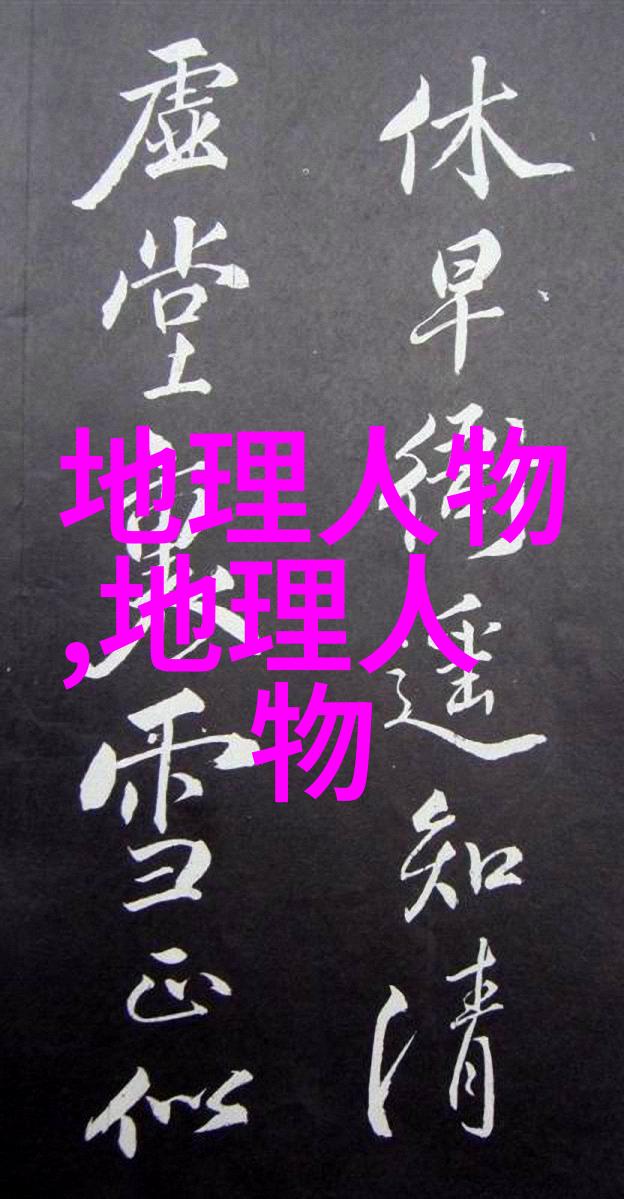 休早衙遥知清
虚堂雪正似
地理人物
,地理人
物